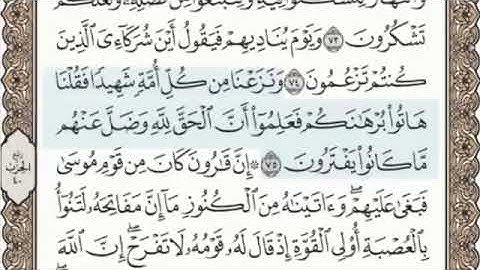 وَالنَّهَارَ لِتَسْكُنُوا۟ فِيهِ وَلِتَبْتَغُوا۟ مِن فَضْلِهِۦ وَلَعَلَّكُمْ
تَشْكُرُونَ ٧٣ وَيَوْمَ يُنَادِيهِمْ فَيَقُولُ أَيْنَ شُرَكَآءِىَ ٱلَّذِينَ
كُنتُمْ تَزْعُمُونَ ٧٤ وَنَزَعْنَا مِن كُلِّ أُمَّةٍ شَهِيدًا فَقُلْنَا
هَاتُوا۟ بُرْهَٰنَكُمْ فَعَلِمُوٓا۟ أَنَّ ٱلْحَقَّ لِلَّهِ وَضَلَّ عَنْهُم
مَّا كَانُوا۟ يَفْتَرُونَ ٧٥ ۞ إِنَّ قَٰرُونَ كَانَ مِن قَوْمِ مُوسَىٰ
فَبَغَىٰ عَلَيْهِمْ ۖ وَءَاتَيْنَٰهُ مِنَ ٱلْكُنُوزِ مَآ إِنَّ مَفَاتِحَهُۥ لَتَنُوٓأُ
بِٱلْعُصْبَةِ أُو۟لِى ٱلْقُوَّةِ إِذْ قَالَ لَهُۥ قَوْمُهُۥ لَا تَفْرَحْ ۖ إِنَّ ٱللَّهَ
ربع
الحزب
٤٠